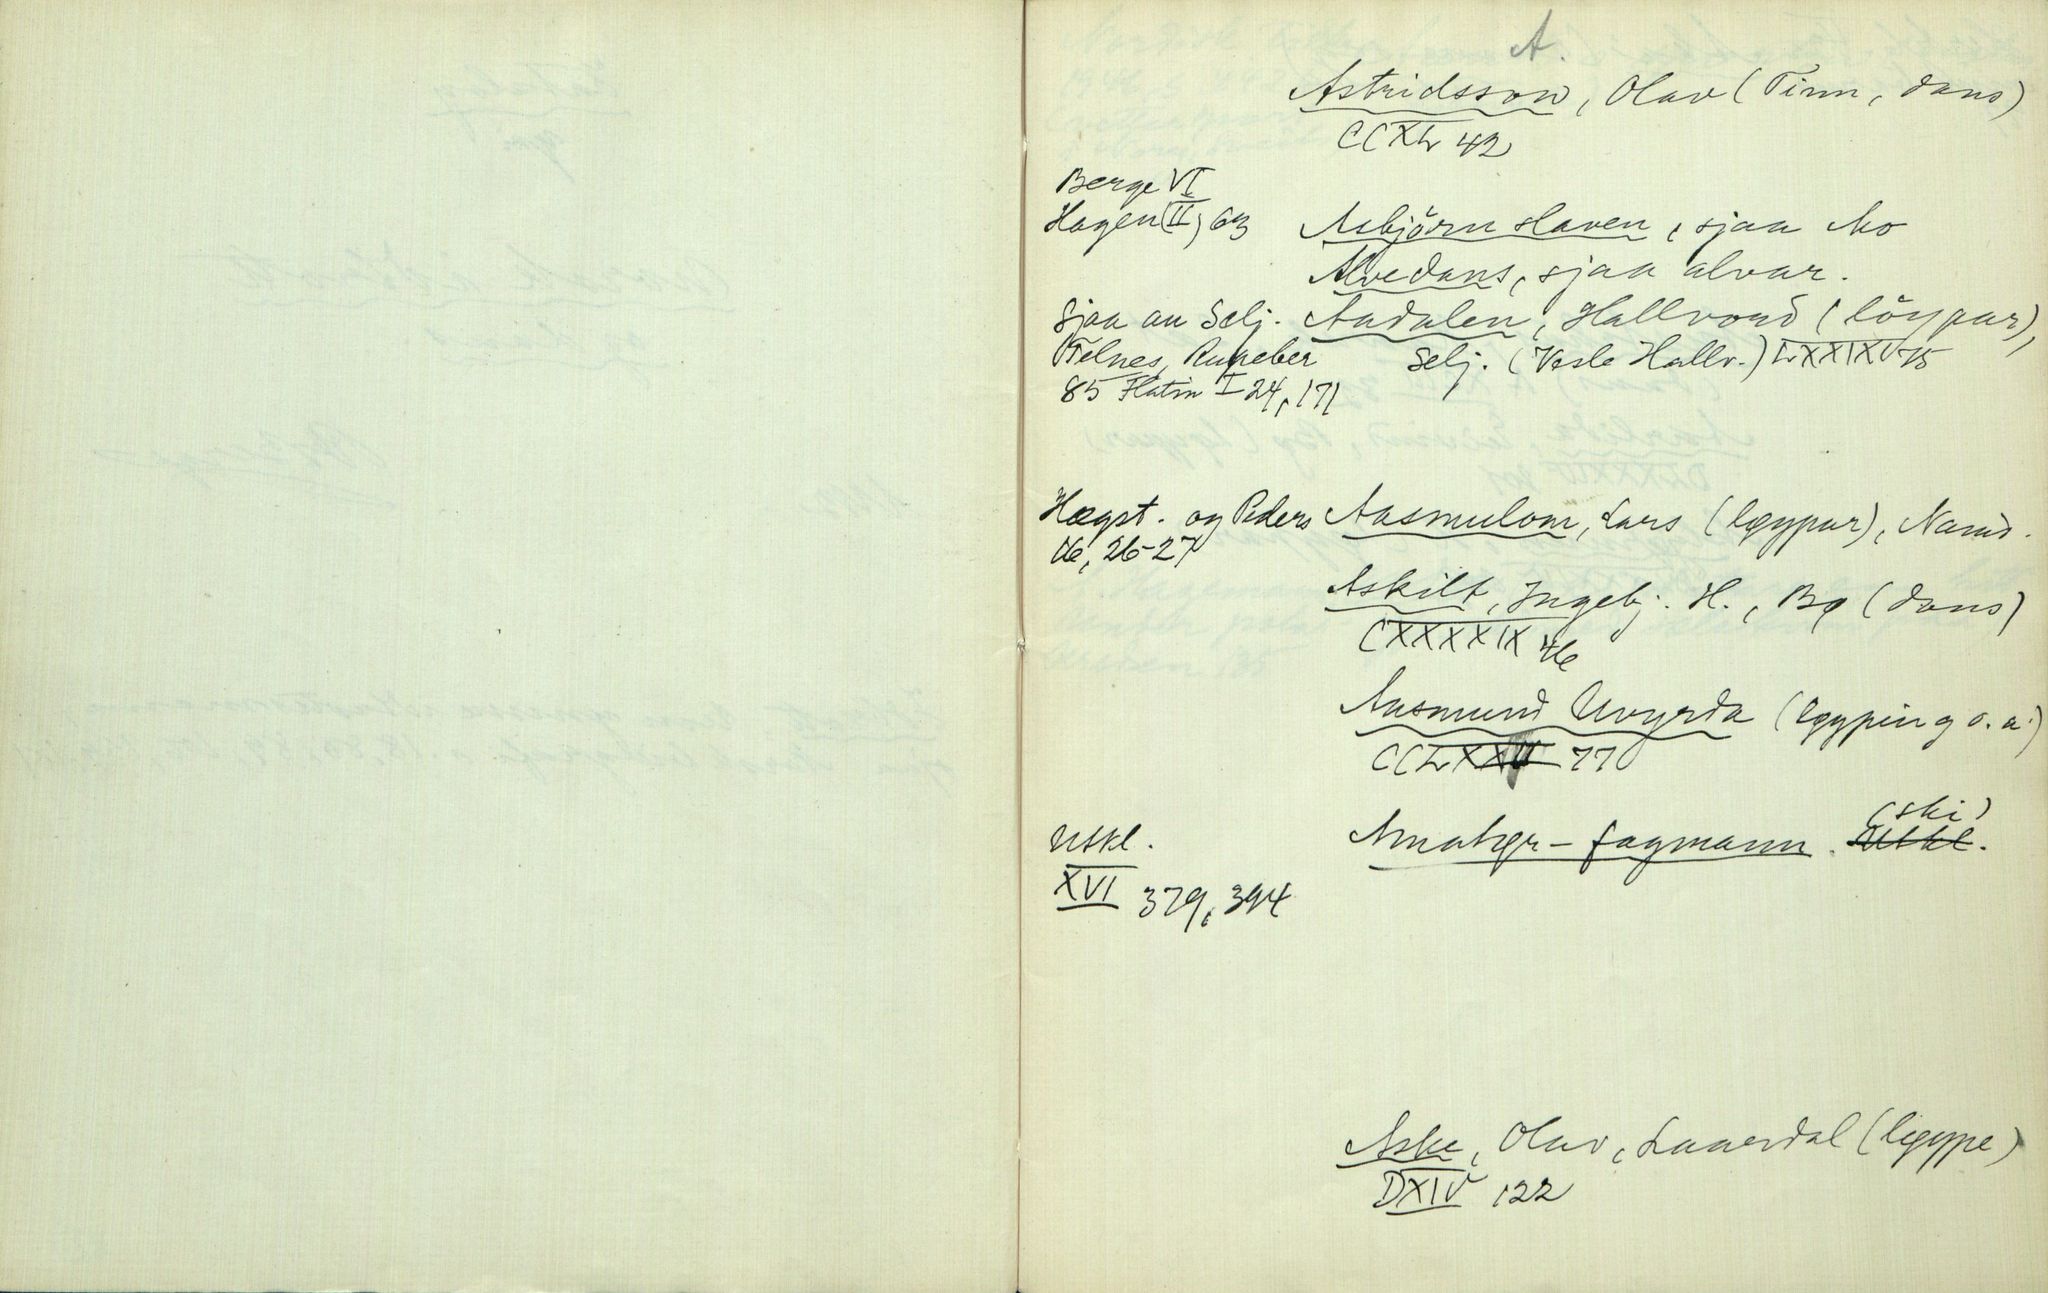 A.
Astridsson, Olav (Tinn, dans)
CCXL 42
Berge VI
Hagen (II) 63 Asbjörn Haven, sjaa Mo
Alvedans, sjaa alvar.
Sjaa au Selj. Aadalen, Hallvord (löypar),
Felnes, Rupeber Selj. (Vesle Hallv.) LXXIX 75
85 Flatin I 24, 171
Hægst. og Peders Aasmulom, Lars (løypar), Namd.
16, 26-27
Askilt, Ingebj. H., Bø (dans)
CXXXXIX 46
Aasmund Uvyrda (løyping o. a.)
CCLXXV 77
(ski)
Utkl. Amatør-fagmann. Utkl.
XVI 379, 394
Aske, Olav, Laardal (løype)
DXIV 122